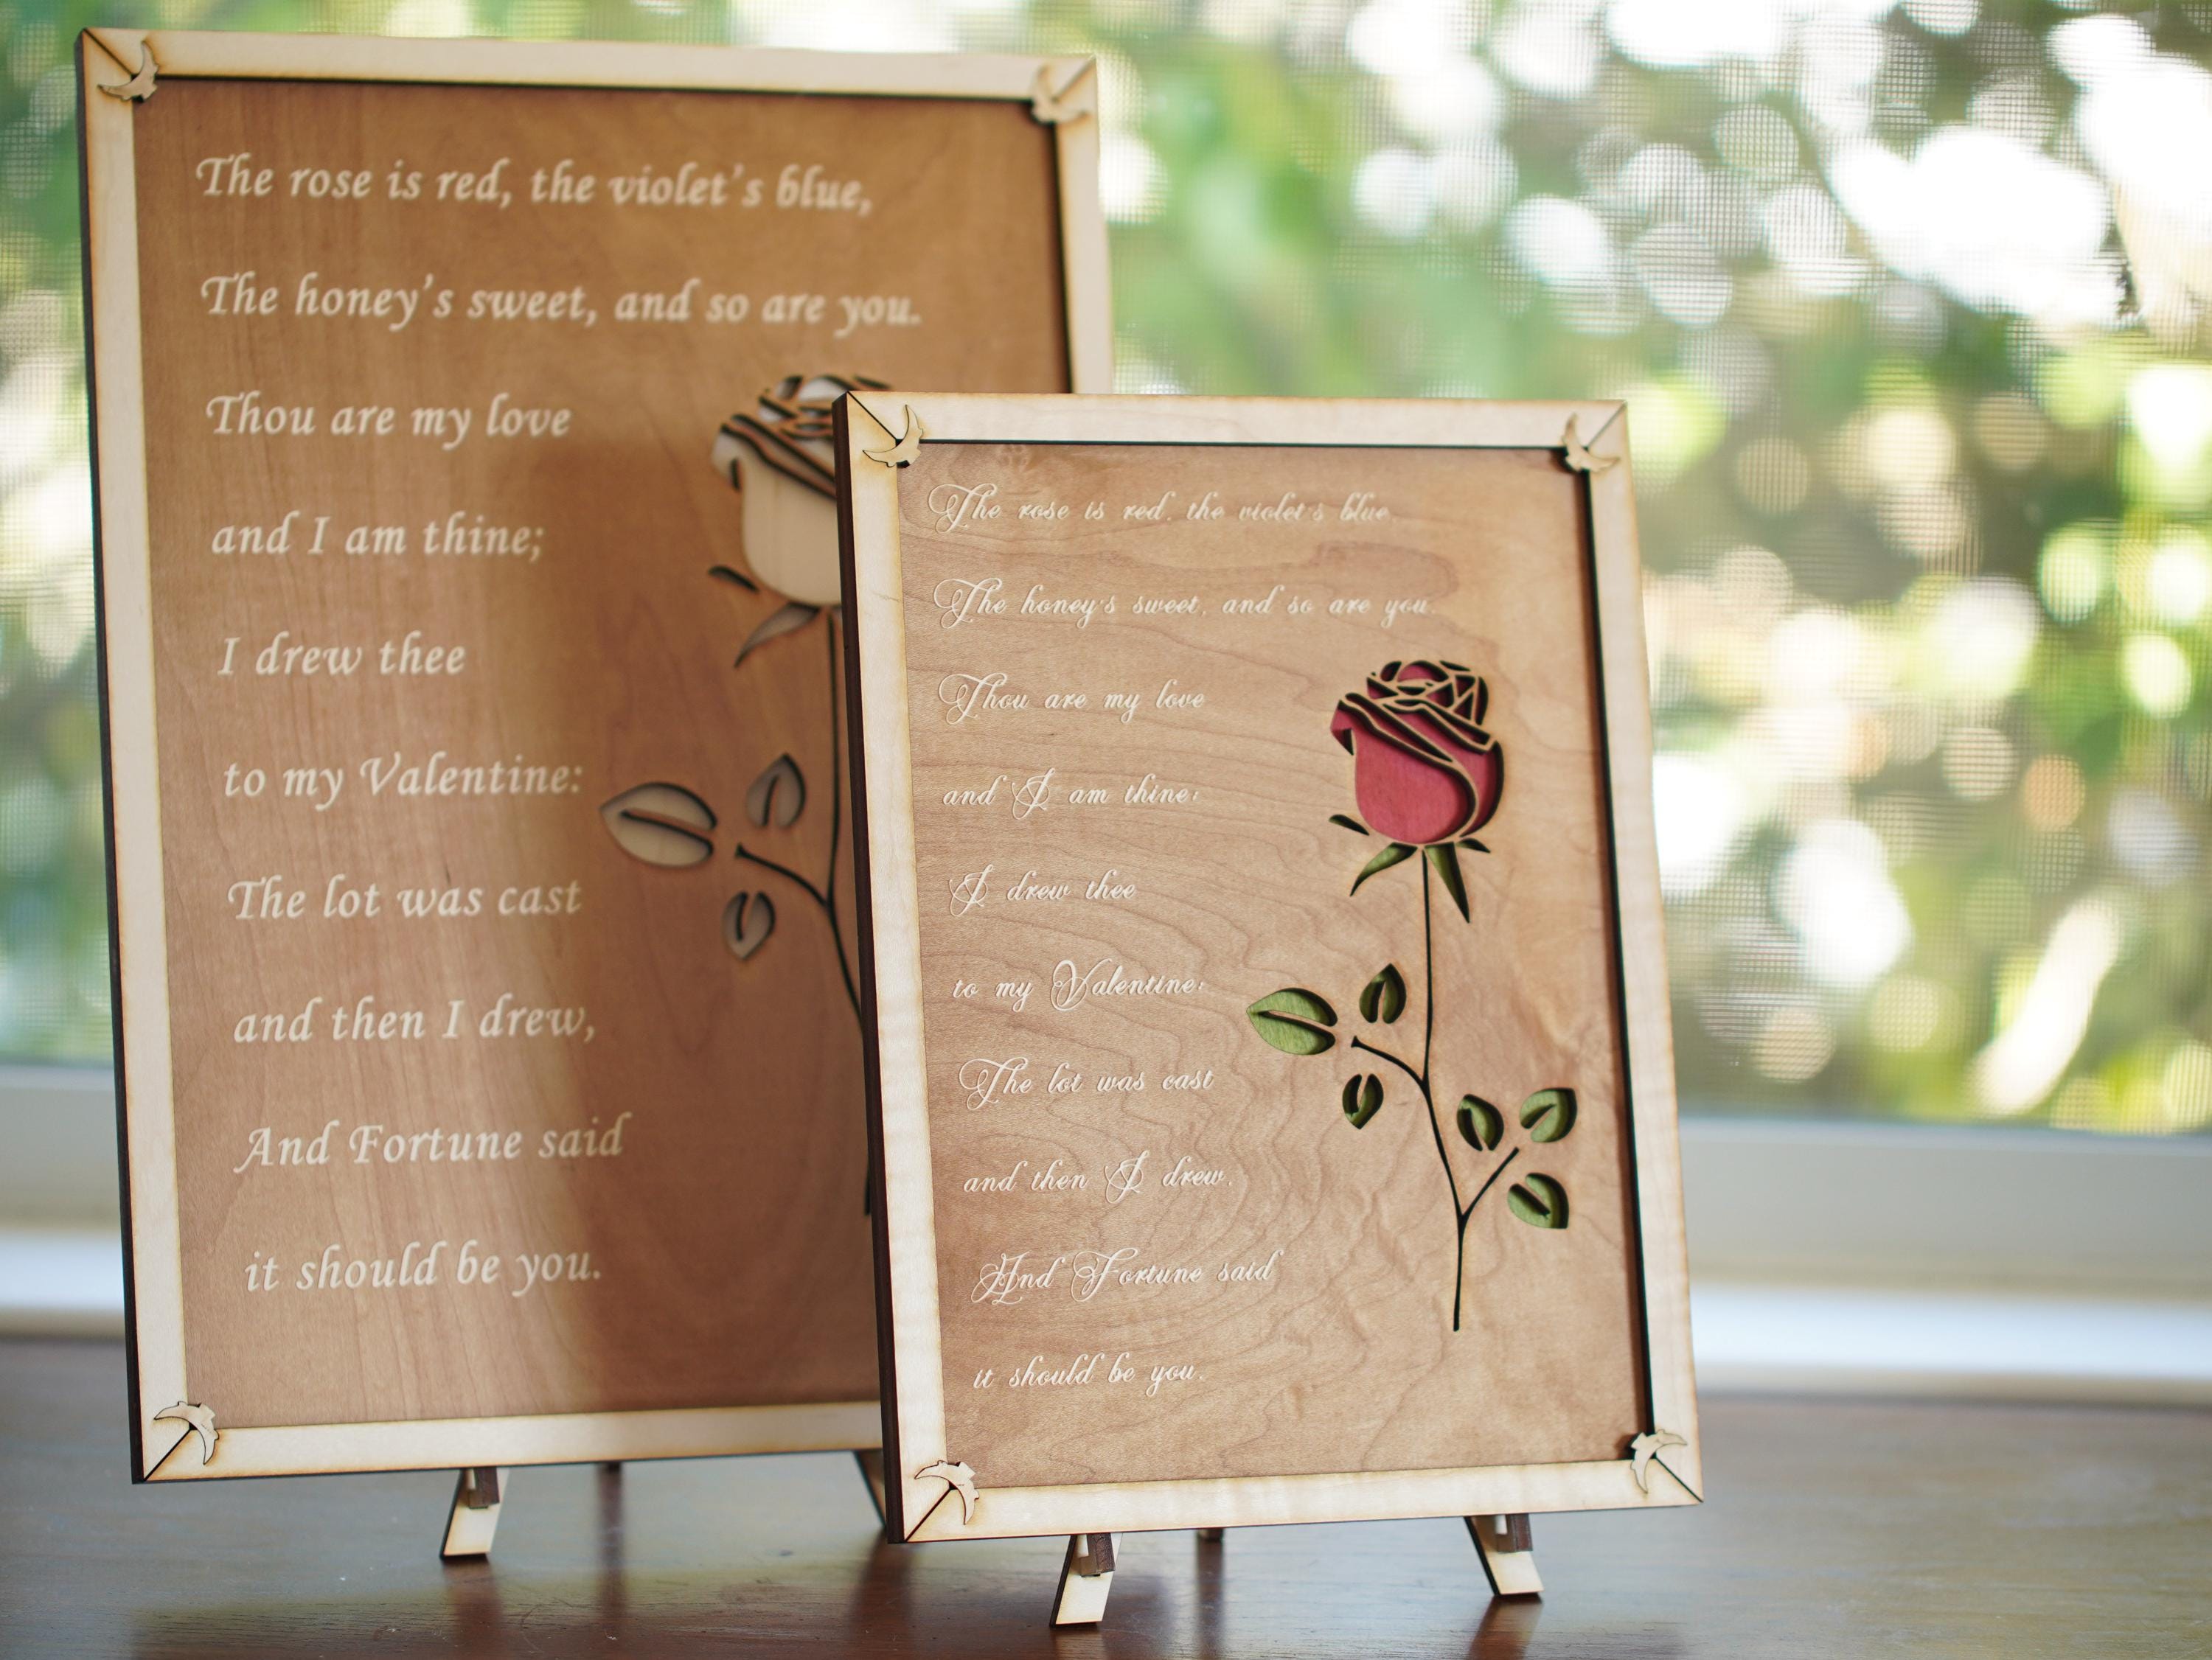 The rose is red, the violet's blue,
The honey's sweet, and so are you.
Thou are my love
and I am thine;
I drew thee
to my Valentine:
The lot was cast
and then I drew,
And Fortune said
it should be you.
The rose is red, the violet's blue,
The honey's sweet, and so are you.
Thou are my love
and I am thine;
I drew thee
to my Valentine:
The lot was cast
and then I drew,
And Fortune said
it should be you.